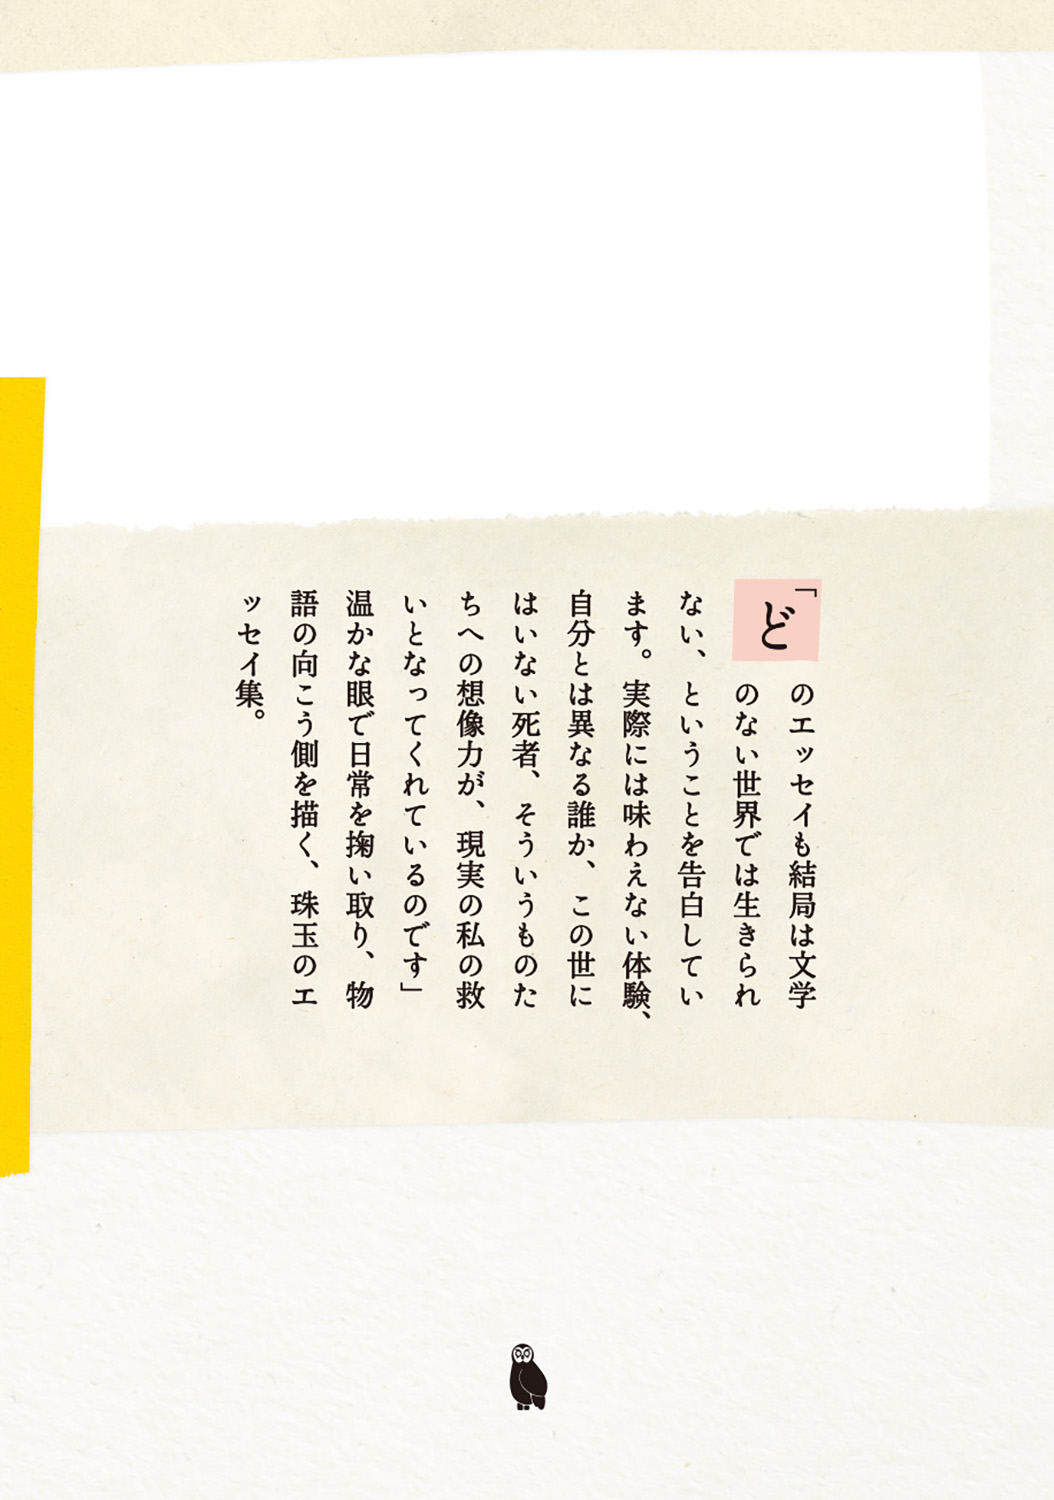 「どのエッセイも結局は文学
のない世界では生きられ
ない、ということを告白してい
ます。実際には味わえない体験、
自分とは異なる誰か、この世に
はいない死者、そういうものた
ちへの想像力が、現実の私の救
いとなってくれているのです」
温かな眼で日常を掬い取り、物
語の向こう側を描く、珠玉のエ
ッセイ集。